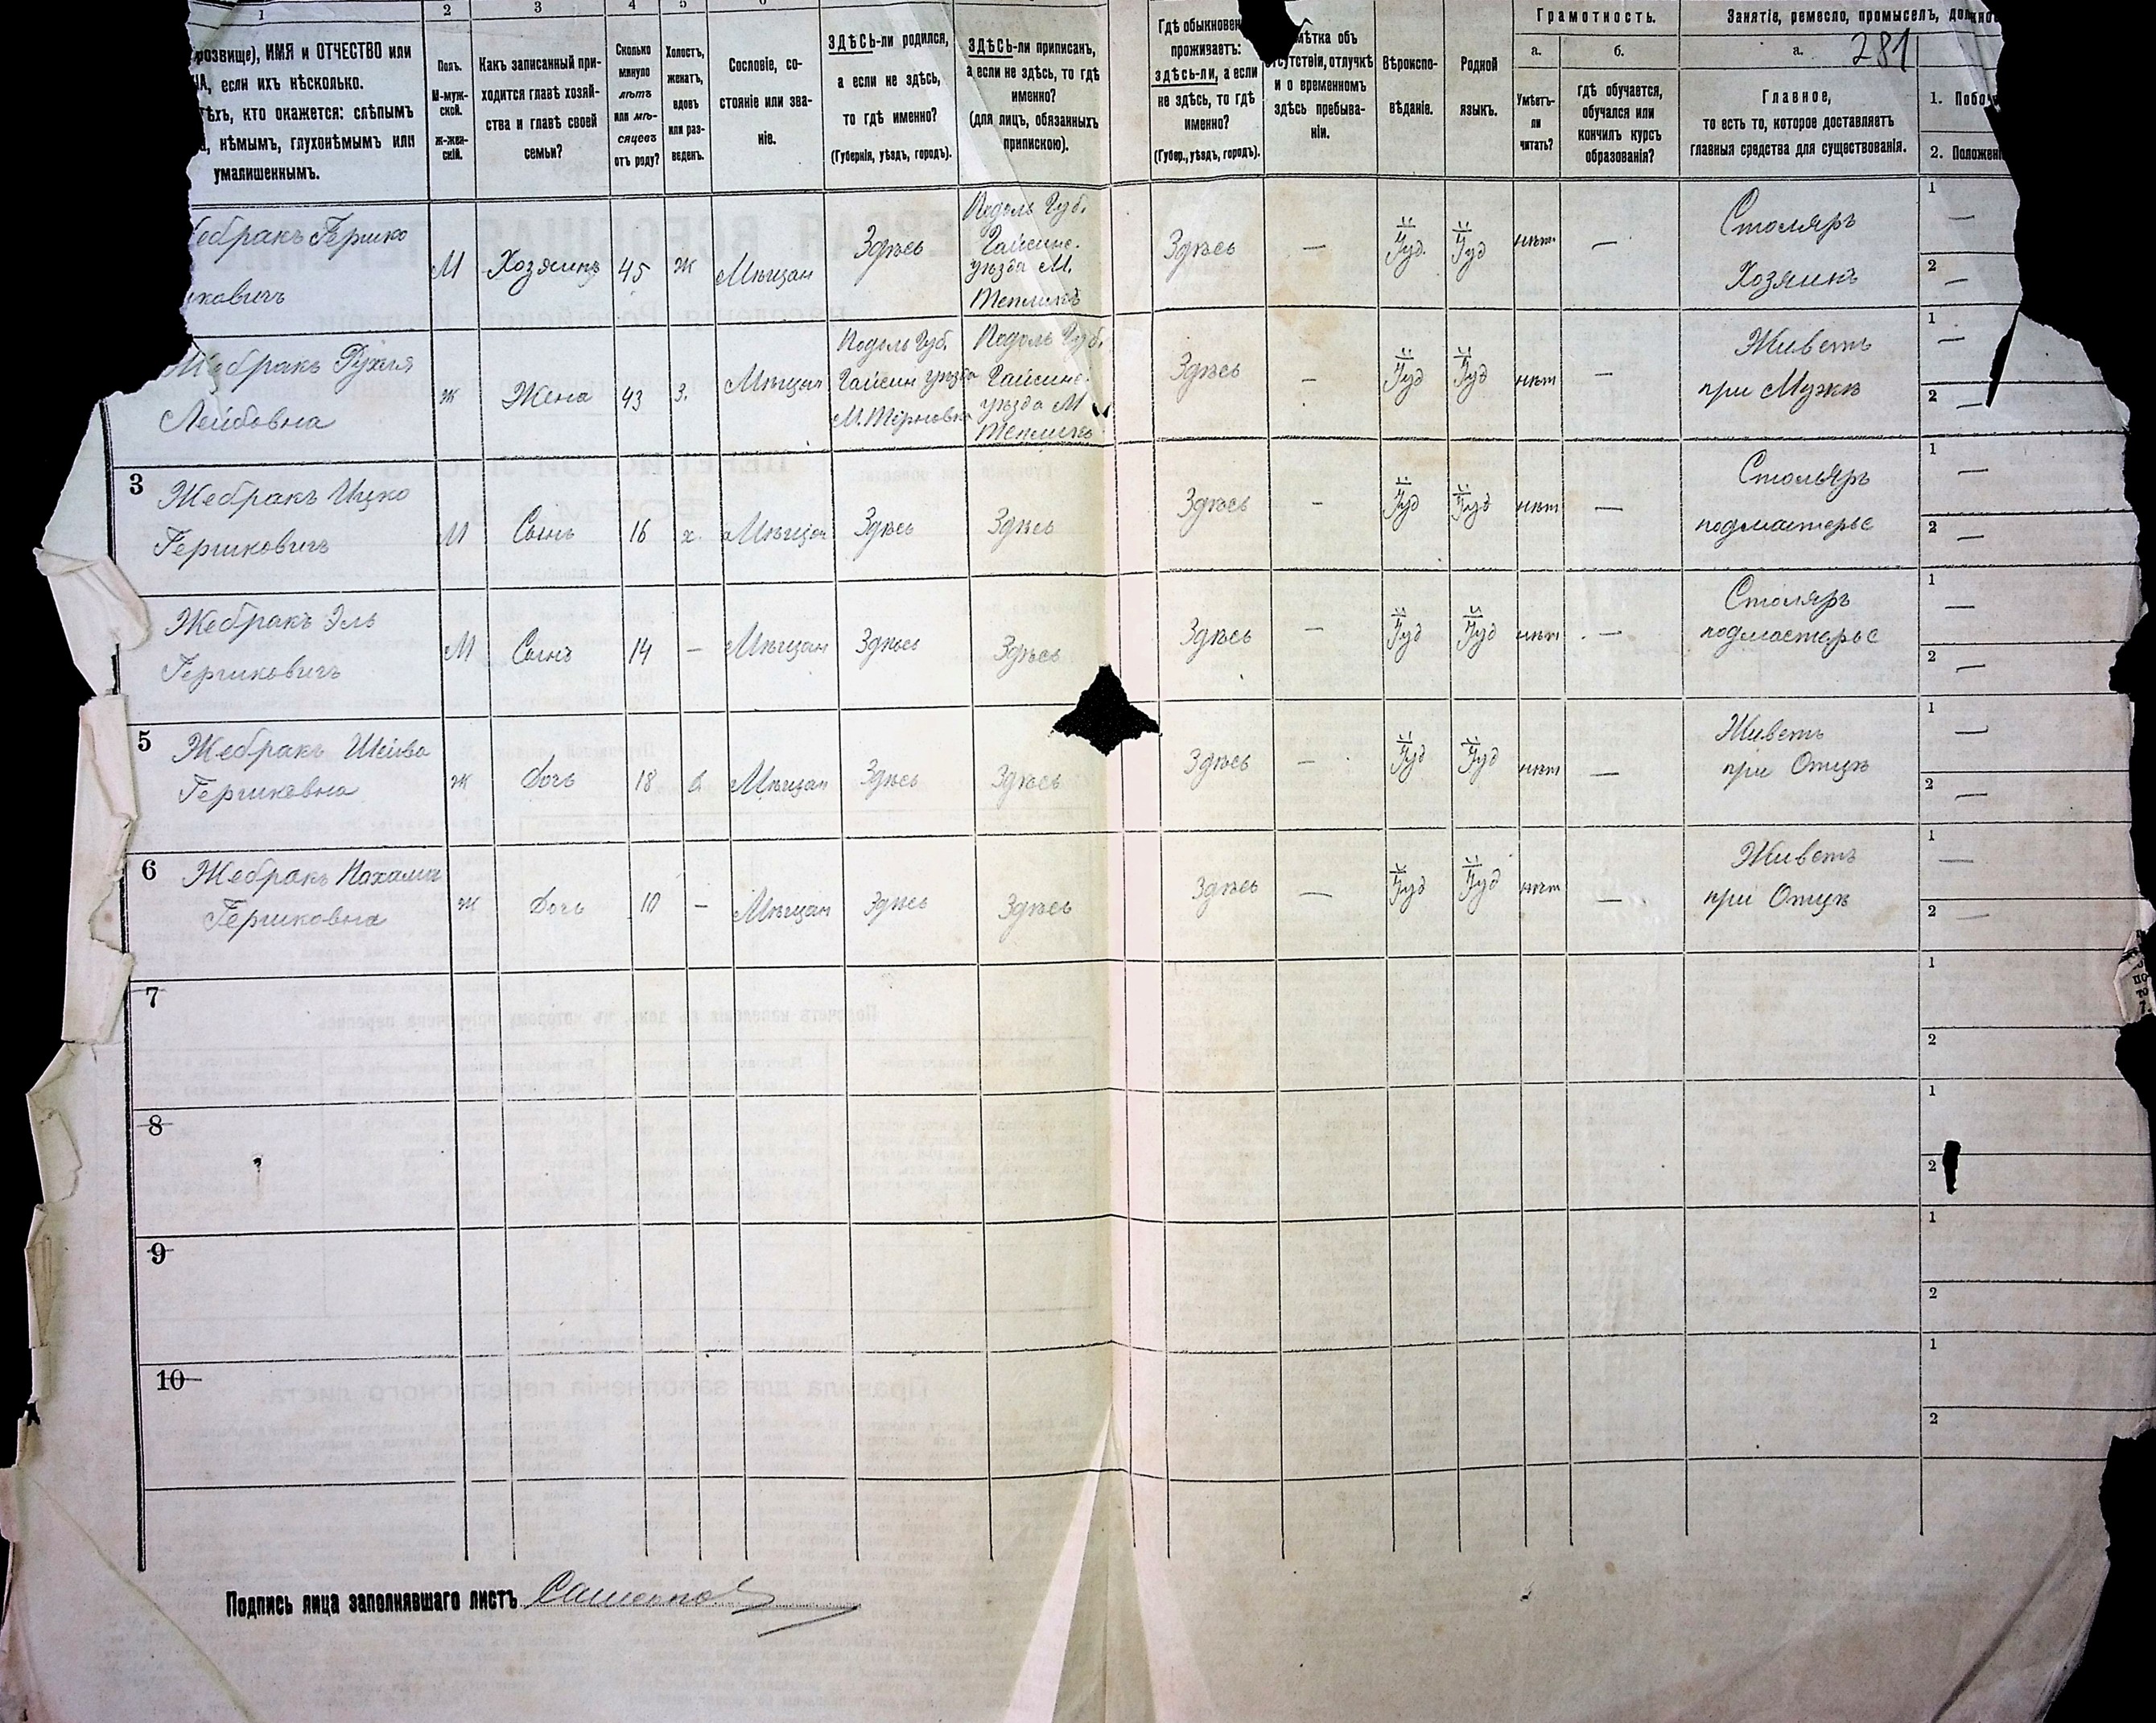 1 2 3 4 5 6
розвище), ИМЯ и ОТЧЕСТВО или
если ихъ нѣсколько.
кто окажется: слѣпымъ
нѣмымъ, глухонѣмымъ или
умалишеннымъ.
Полъ.
М-муж-
ской.
Ж-жен-
скій.
Какъ записанный при-
ходится главѣ хозяй-
ства и главѣ своей
семьи?
Сколько
минуло
лѣтъ
или мѣ-
сяцевъ
отъ роду?
Холостъ,
женатъ,
вдовъ
или раз-
веденъ.
Сословіе, со-
стояніе или зва-
ніе.
ЗДѢСЬ-ли родился,
а если не здѣсь,
то гдѣ именно?
(Губернія, уѣздъ, городъ).
ЗДѢСЬ-ли приписанъ,
а если не здѣсь, то гдѣ
именно?
(для лицъ, обязанныхъ
припискою).
Гдѣ обыкновен
проживаетъ:
здѣсь-ли, а если
не здѣсь, то гдѣ
именно?
(Губер., уѣздъ, городъ).
мѣтка объ
сутствіи, отлучкѣ
и о временномъ
здѣсь пребыва-
ніи.
Вѣроиспо-
вѣданіе.
Родной
языкъ.
Грамотность.
а.
Умѣетъ-
ли
читать?
б.
гдѣ обучается,
обучался или
кончилъ курсъ
образованія?
Занятіе, ремесло, промыселъ,
а. 281
Главное,
то есть то, которое доставляетъ
главныя средства для существованія.
1. Побо
2. Положен
ебракъ Гершко
ковичъ
М Хозяинъ 45 Ж Мѣщан Здѣсь
Подоль Губ.
Гайсинс.
уѣзда М.
Тепликъ
Здѣсь — Іуд. Іуд нѣт —
Столяръ
Хозяинъ
1 —
2 —
Жебракъ Рухля
Лейбовна
ж Жена 43 З. Мѣщан
Подоль Губ.
Гайсин уѣзда
М. Терновка
Подоль Губ.
Гайсинс.
уѣзда М
Тепликъ
Здѣсь — Іуд Іуд нѣт —
Живетъ
при Мужѣ
1 —
2 —
3 Жебракъ Ицко
Гершковичъ
М Сынъ 16 х. Мѣщан Здѣсь Здѣсь
Здѣсь — Іуд Іуд нѣт —
Столяръ
подмастерье
1 —
2 —
Жебракъ Эль
Гершковичъ
М Сынъ 14 — Мѣщан Здѣсь Здѣсь
Здѣсь — Іуд Іуд нѣт —
Столяръ
подмастерье
1 —
2 —
5 Жебракъ Шейва
Гершковна
ж Дочь 18 Мѣщан Здѣсь Здѣсь
Здѣсь — Іуд Іуд нѣт —
Живетъ
при Отцѣ
1 —
2 —
6 Жебракъ
Гершковна
ж Дочь 10 — Мѣщан Здѣсь Здѣсь
Здѣсь — Іуд Іуд нѣт —
Живетъ
при Отцѣ
1 —
2 —
7
1
2
8
1
2
9
1
2
10
1
2
Подпись лица заполнявшаго листъ